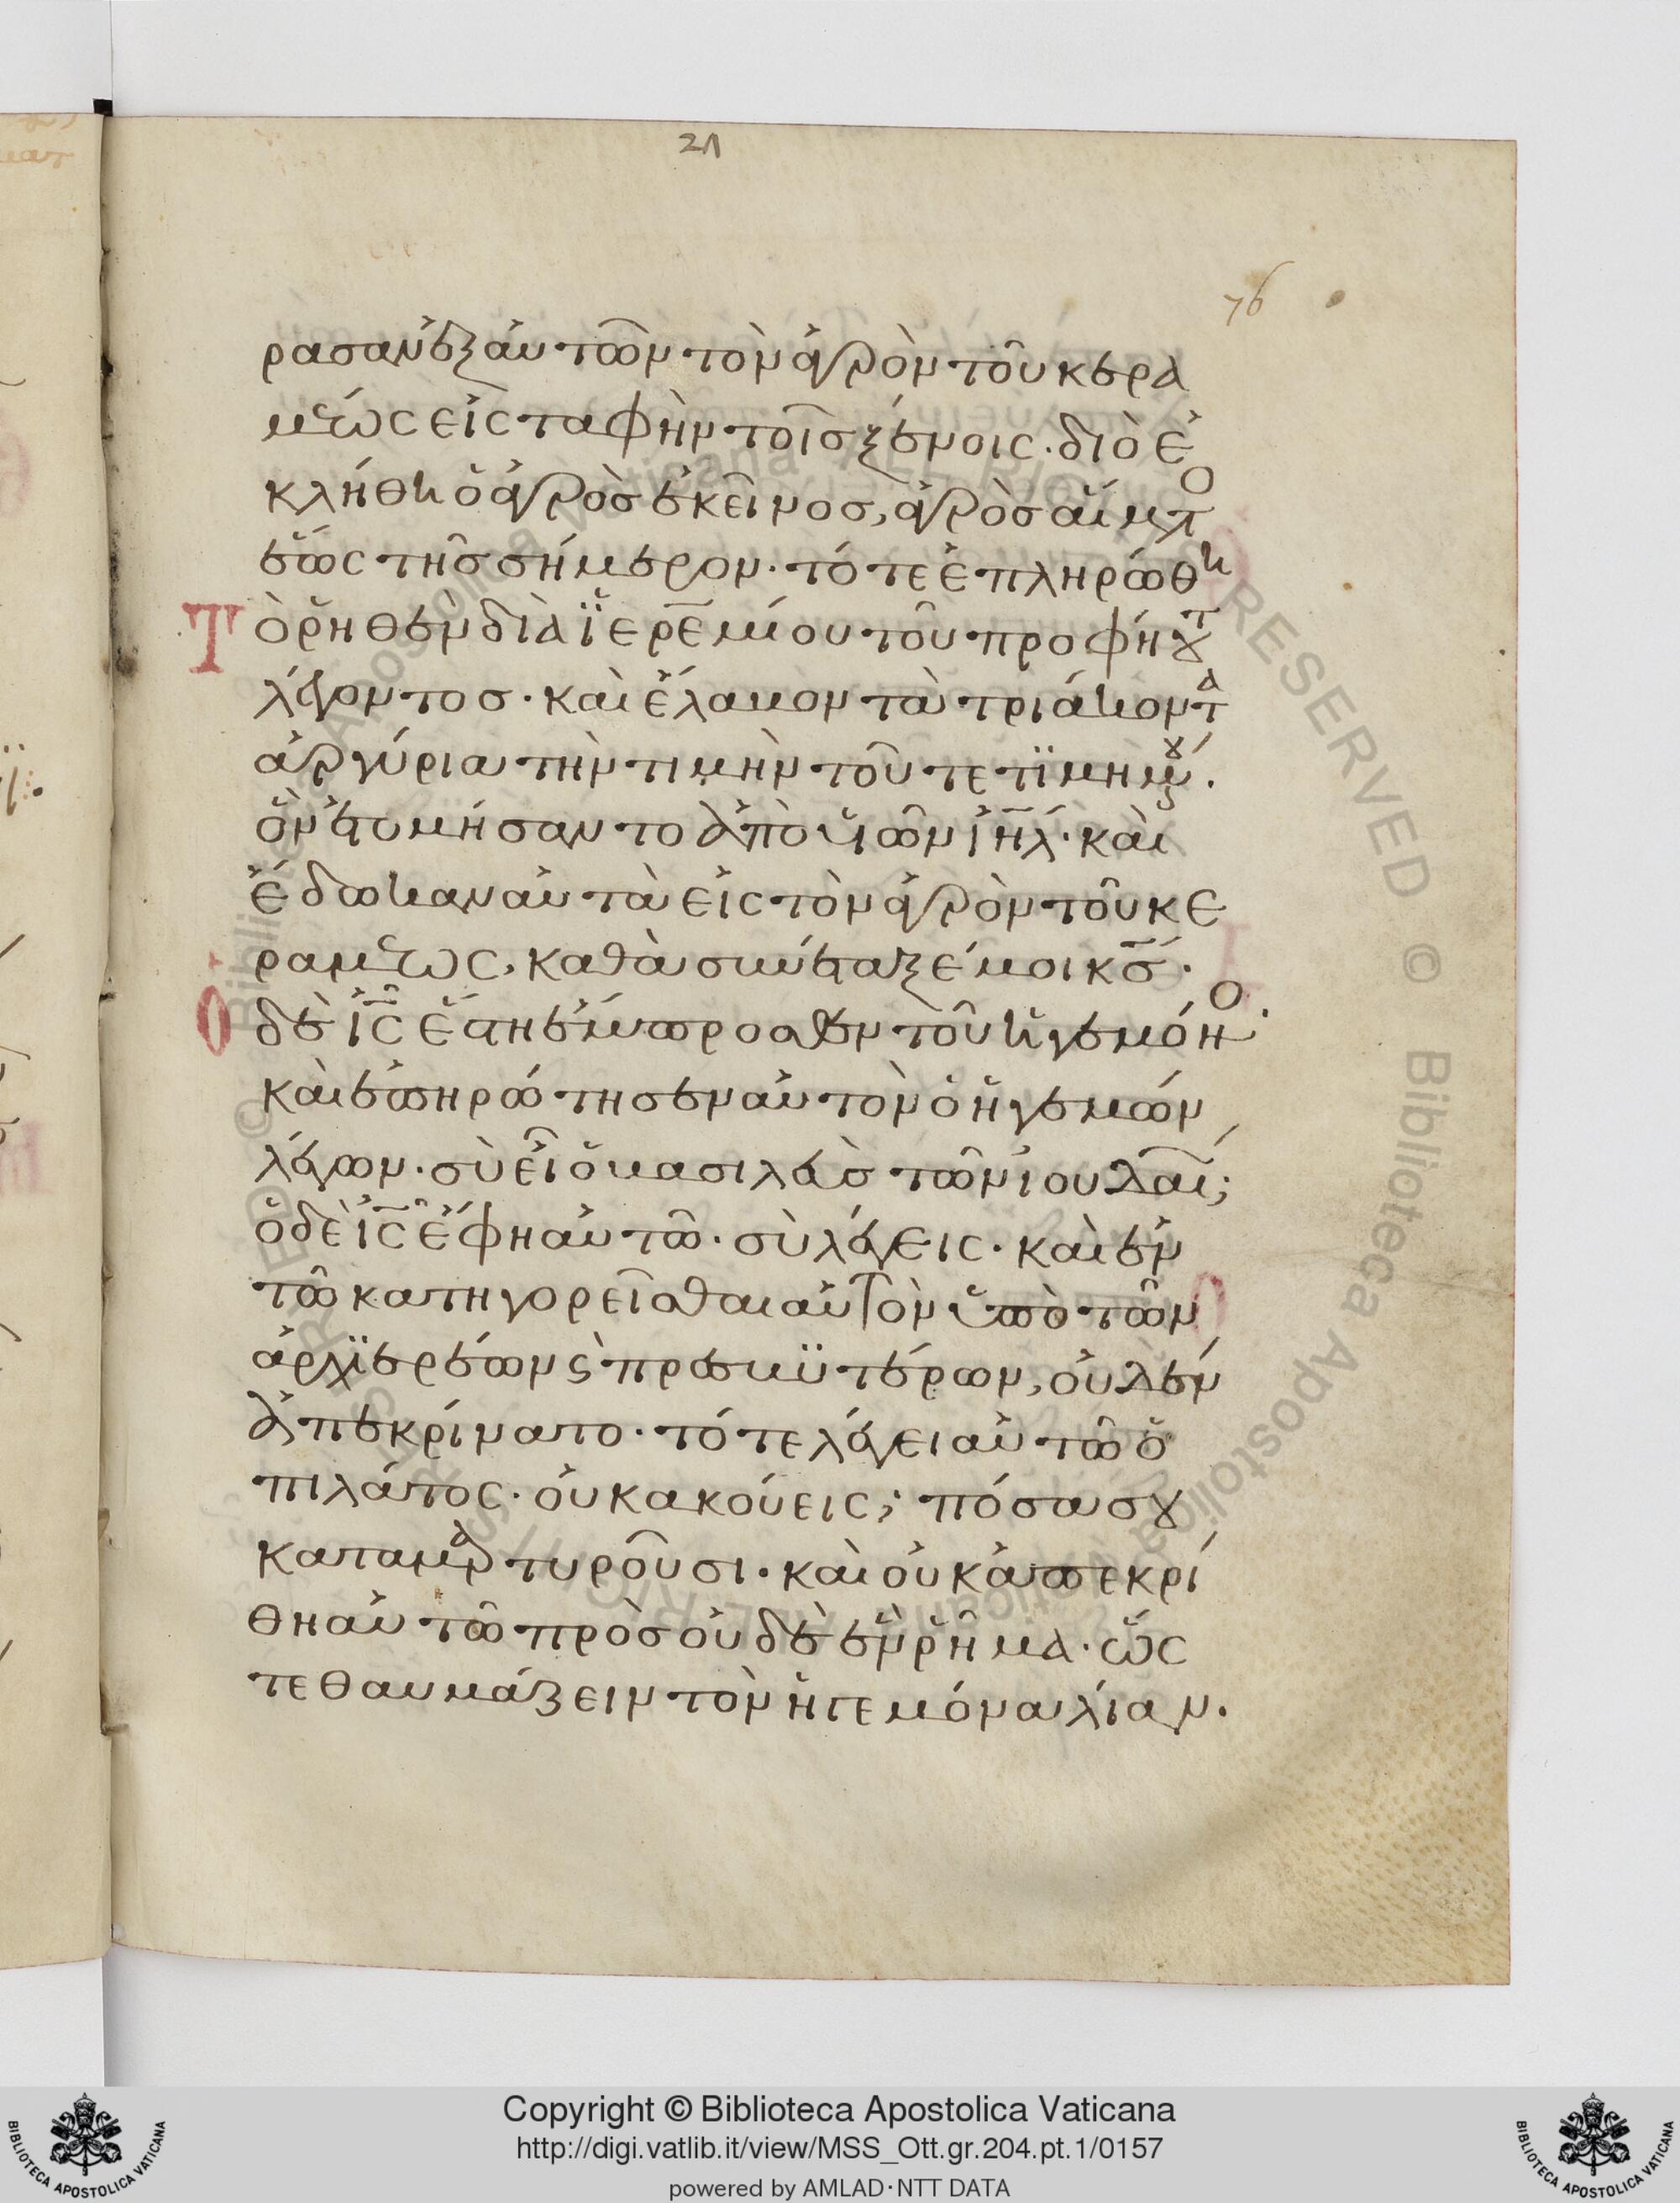 21
76
ρασαν ἐξ αὐτῶν τὸν ἀγρὸν τοῦ κερα
μέως εἰς ταφὴν τοῖς ξένοις· διὸ ἐ
κλήθη ὁ ἀγρὸς ἐκεῖνος, ἀγρὸς αἵματο
ἕως τῆς σήμερον· τότε ἐπληρώθη
Τὸ ῥηθὲν διὰ ἱερεμίου τοῦ προφήτου
λέγοντος· καὶ ἔλαβον τὰ τριάκοντα
ἀργύρια τὴν τιμὴν τοῦ τετϊμημένου·
ὃν ἐτιμήσαντο ἀπὸ υἱῶν ἰηλ· καὶ
ἔδωκαν αὐτὰ εἰς τὸν ἀγρὸν τοῦ κε
ραμέως, καθὰ συνέταξέ μοι κς·
Ὁ δὲ ἰς ἔστη ἔμπροσθεν τοῦ ἡγεμόνο·
καὶ ἐπηρώτησεν αὐτὸν ὁ ἡγεμών
λέγων· σὺ εἶ ὁ βασιλεὺς τῶν ἰουδαί;
ὁ δὲ ἰς ἔφη αὐτῶ· σὺ λέγεις· καὶ ἐν
τῶ κατηγορεῖσθαι αὐτὸν ὑπὸ τῶν
ἀρχϊερέων ϗ πρεσβϋτέρων, οὐδὲν
ἀπεκρίνατο· τότε λέγει αὐτῶ ὁ
πιλάτος· οὐκ ακούεις; πόσα σου
καταμαρτυροῦσι· καὶ οὐκ ἀπεκρί
θη αὐτῶ πρὸς οὐδὲ ἓν ῥῆμα· ὥς
τε θαυμάζειν τὸν ἡγεμόνα λίαν·
Copyright © Biblioteca Apostolica Vaticana
http://digi.vatlib.it/view/MSS_Ott.gr.204.pt.1/0157
powered by AMLAD·NTT DATA